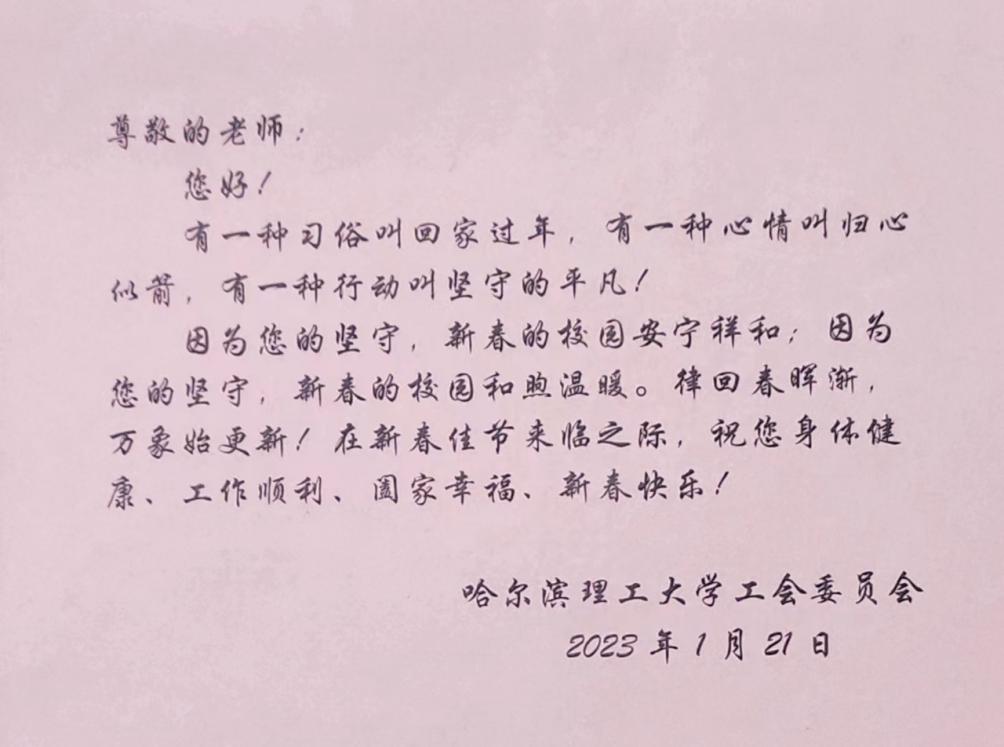 尊敬的老师：
您好！
有一种习俗叫回家过年，有一种心情叫归心
似箭，有一种行动叫坚守的平凡！
因为您的坚守，新春的校园安宁祥和；因为
您的坚守，新春的校园和煦温暖。律回春晖渐，
万象始更新！在新春佳节来临之际，祝您身体健
康、工作顺利、阖家幸福、新春快乐！
哈尔滨理工大学工会委员会
2023年1月21日